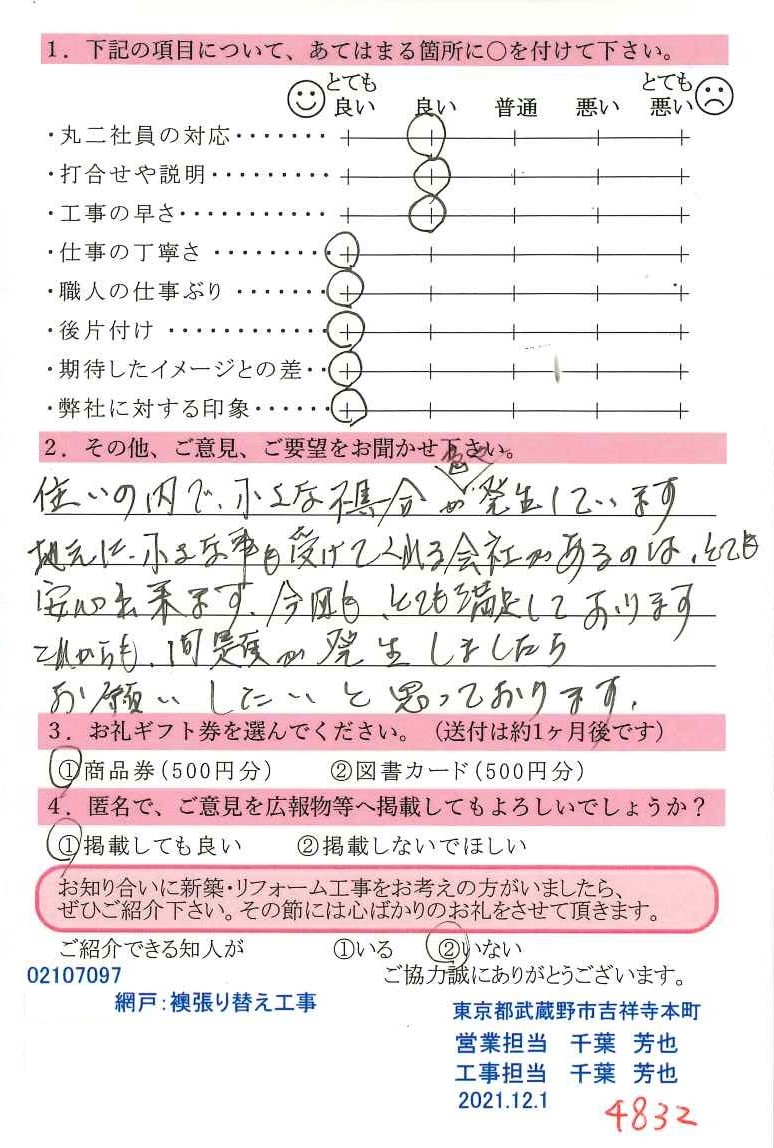 1．下記の項目について、あてはまる箇所に○を付けて下さい。
とても良い 良い 普通 悪い とても悪い
・丸二社員の対応・・・・・・・
・打合せや説明・・・・・・・・・
・工事の早さ・・・・・・・・・・・
・仕事の丁寧さ・・・・・・・・
・職人の仕事ぶり・・・・・・・
・後片付け・・・・・・・・・・・・
・期待したイメージとの差・・
・弊社に対する印象・・・・・・
2．その他、ご意見、ご要望をお聞かせ下さい。
住いの内で、小さな不具合が発生しています
小さな事も受けてくれる会社があるのは、とても
安心出来ます、今回も、とても満足しております
これからも、問題が発生しましたら
お願いしたいと思っております。
3．お礼ギフト券を選んでください。（送付は約1ヶ月後です）
①商品券(500円分） ②図書カード(500円分）
4．匿名で、ご意見を広報物等へ掲載してもよろしいでしょうか？
①掲載しても良い ②掲載しないでほしい
お知り合いに新築・リフォーム工事をお考えの方がいましたら、
ぜひご紹介下さい。その節には心ばかりのお礼をさせて頂きます。
ご紹介できる知人が ①いる ②いない
02107097 ご協力誠にありがとうございます。
網戸：襖張り替え工事
東京都武蔵野市吉祥寺本町
営業担当 千葉 芳也
工事担当 千葉 芳也
2021.12.1
4832